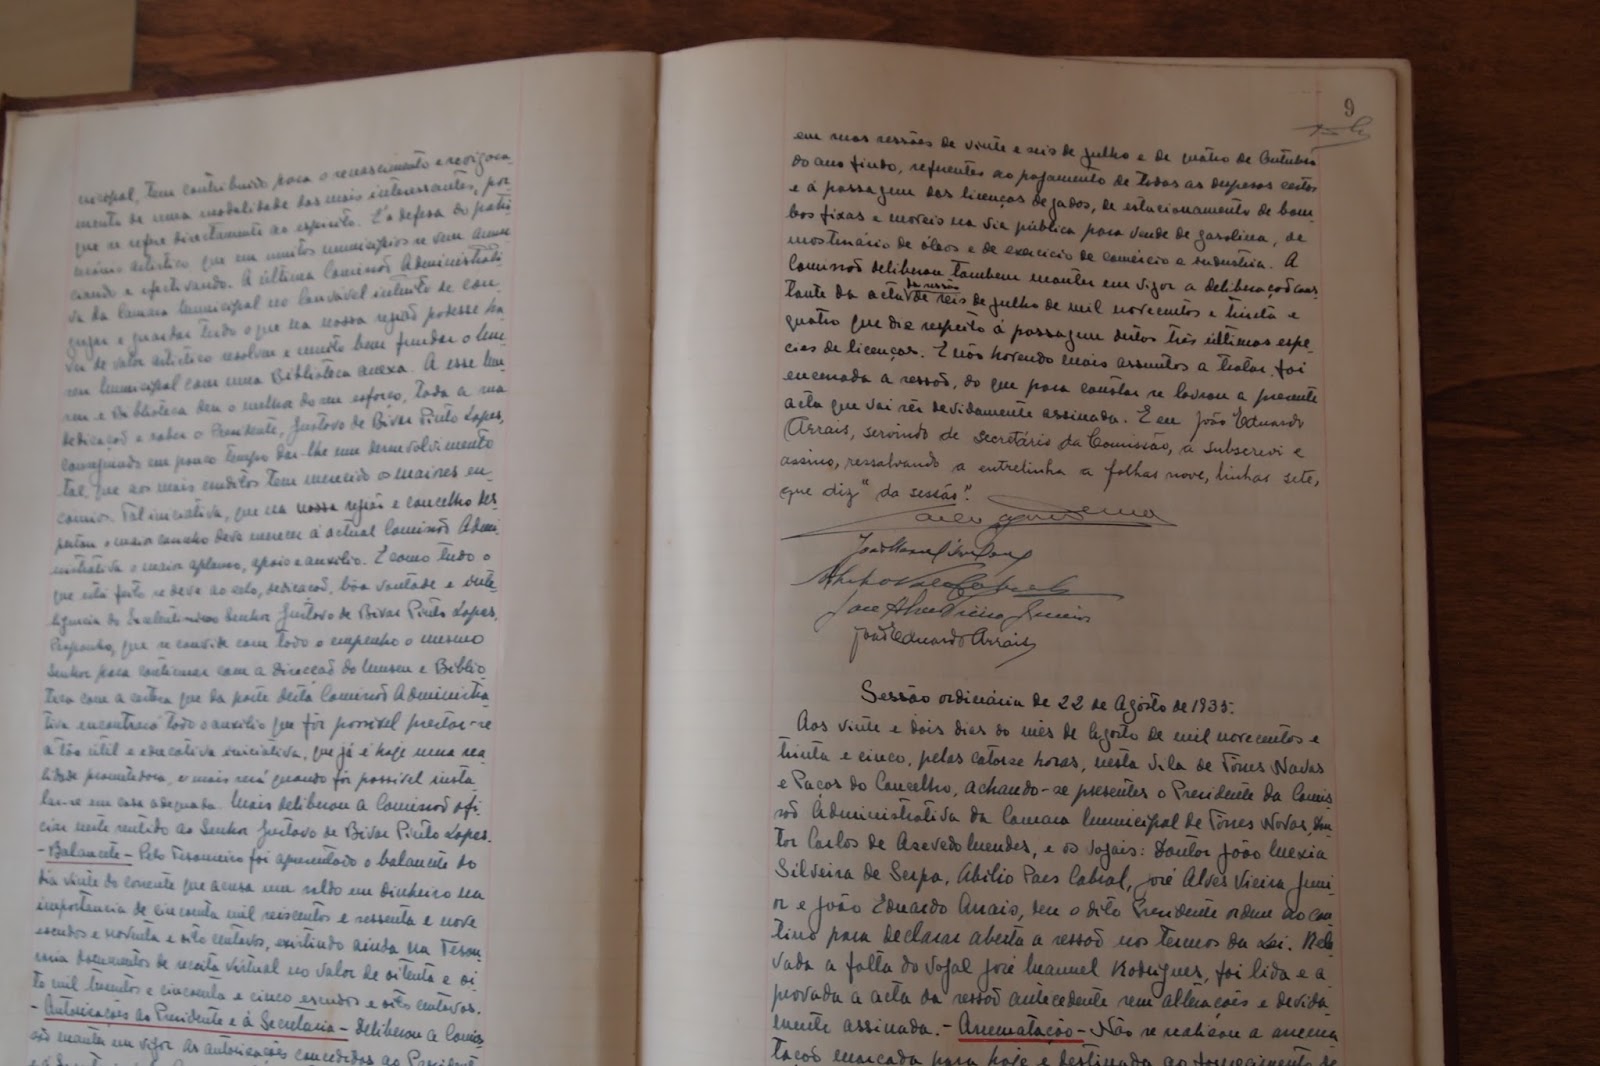 nicipal, tem contribuido para o renascimento e revigora
mento de uma modalidade das mais interessantes, por
que se refere directamente ao espirito. E' a defesa do patri
mónio artistico que em muitos municípios se vem acen
tuando e efectivando. A última Comissão Administrati
va da Camara Municipal no louvável intuito de con
jugar e guardar tudo o que na nossa região podesse ha
ver de valor artistico resolveu e muito bem fundar o Mu
seu Municipal com uma Biblioteca anexa. A esse Mu
seu e Biblioteca deu o melhor do seu esforço, toda a sua
dedicação e saber o Presidente, Gustavo de Bivar Pinto Lopes,
conseguindo em pouco tempo dar-lhe um desenvolvimento
tal, que aos mais eruditos tem merecido os maiores en
comios. Tal iniciativa, que na nossa região e concelho des
pertou o maior carinho deve merecer á actual Comissão Admi
nistrativa o maior aplauso, apoio e auxilio. E como tudo o
que está feito se deve ao zelo, dedicação, bôa vontade e inte
ligencia do Excelentissimo Senhor Gustavo de Bivar Pinto Lopes,
Proponho, que se convide com todo o empenho o mesmo
Senhor para continuar com a direcção do Museu e Biblio
teca com a certeza que da parte desta Comissão Administra
tiva encontrará todo o auxilio que fôr possivel prestar-se
a tão util e educativa iniciativa, que já é hoje uma rea
lidade prometedora, e mais será quando fôr possivel insta
lar-se em casa adequada. Mais deliberou a Comissão ofi
ciar neste sentido ao Senhor Gustavo de Bivar Pinto Lopes.
- Balancete - Pelo Tesoureiro foi apresentado o balancete do
dia vinte do corrente que acusa um saldo em dinheiro na
importancia de cincoenta mil seiscentos e sessenta e nove
escudos e noventa e oito centavos, existindo ainda na Tesou
raria documentos de receita virtual no valor de oitenta e oi
to mil trezentos e cincoenta e cinco escudos e oito centavos.
- Autorisações ao Presidente e á Secretaria - Deliberou a Comis
são manter em vigor as autorisações concedidas ao President
9
em suas sessões de vinte e seis de Julho e de quatro de Outubro
do ano findo, referentes ao pagamento de todas as despesas certas
e á passagem das licenças de gados, de estacionamento de bom
bas fixas e moveis na via pública para venda de gasolina, de
mostruário de óleos e de exercicio de comércio e industria. A
Comissão deliberou tambem manter em vigor a deliberação cons
da sessão
tante da acta de seis de Julho de mil novecentos e trinta e
quatro que diz respeito á passagem destas três últimas espe
cies de licenças. E não havendo mais assuntos a tratar, foi
encerrada a sessão, do que para constar se lavrou a presente
acta que vai ser devidamente assinada. E eu João Eduardo
Arrais, servindo de secretário da Comissão, a subscrevi e
assino, ressalvando a entrelinha a folhas nove, linhas sete,
que diz "da sessão".
José Alves Vieira Junior
João Eduardo Arrais
Sessão ordinária de 22 de Agosto de 1935.
Aos vinte e dois dias do mês de Agosto de mil novecentos e
trinta e cinco, pelas catorze horas, nesta vila de Torres Novas
e Paços do Concelho, achando-se presentes o Presidente da Comis
são Administrativa da Camara Municipal de Tôrres Novas, Dou
tor Carlos de Azevedo Mendes, e os vogais: Doutor João Mexia
Silveira de Serpa, Abilio Paes Cabral, José Alves Vieira Juni
or e João Eduardo Arrais, deu o dito Presidente ordem ao con
tinuo para declarar aberta a sessão nos termos da Lei. Rele
vada a falta do vogal José Manuel Rodrigues, foi lida e a
provada a acta da sessão antecedente sem alterações e devida
mente assinada. - Arrematação - Não se realisou a arrema
tação marcada para hoje e destinada ao fornecimento de